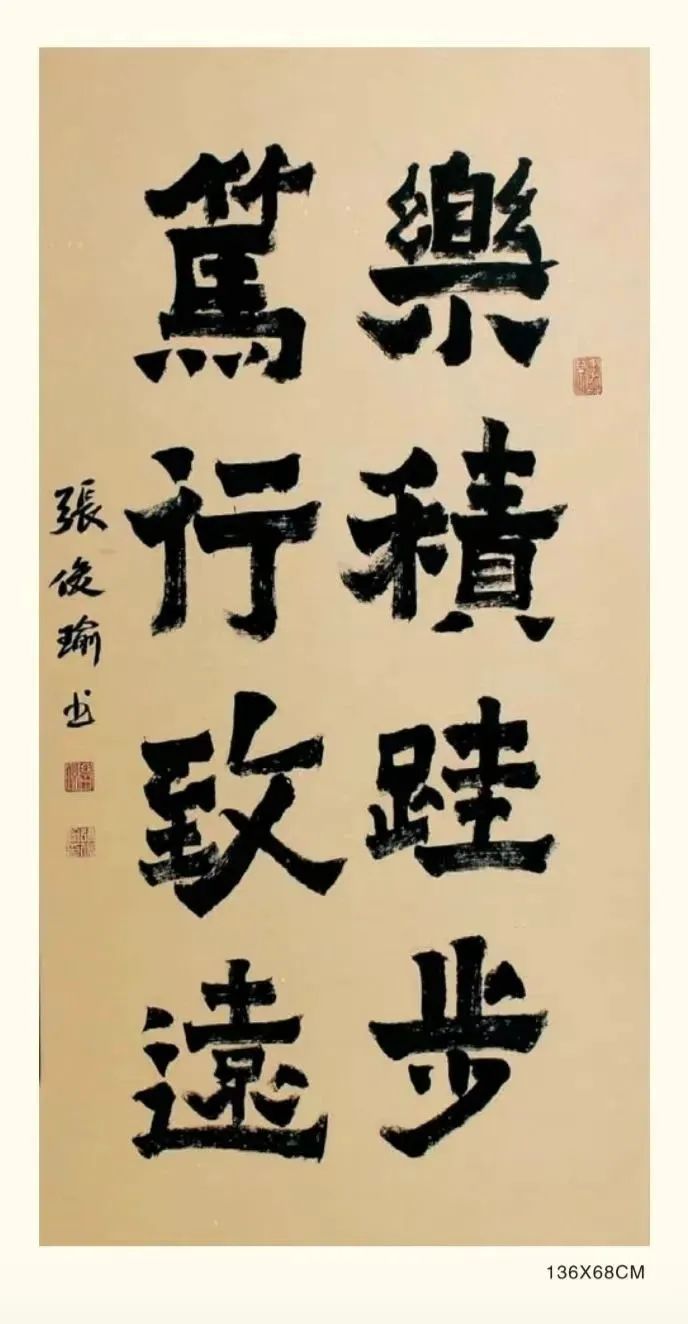 樂積跬步
篤行致遠
張俊瑜书
136X68CM